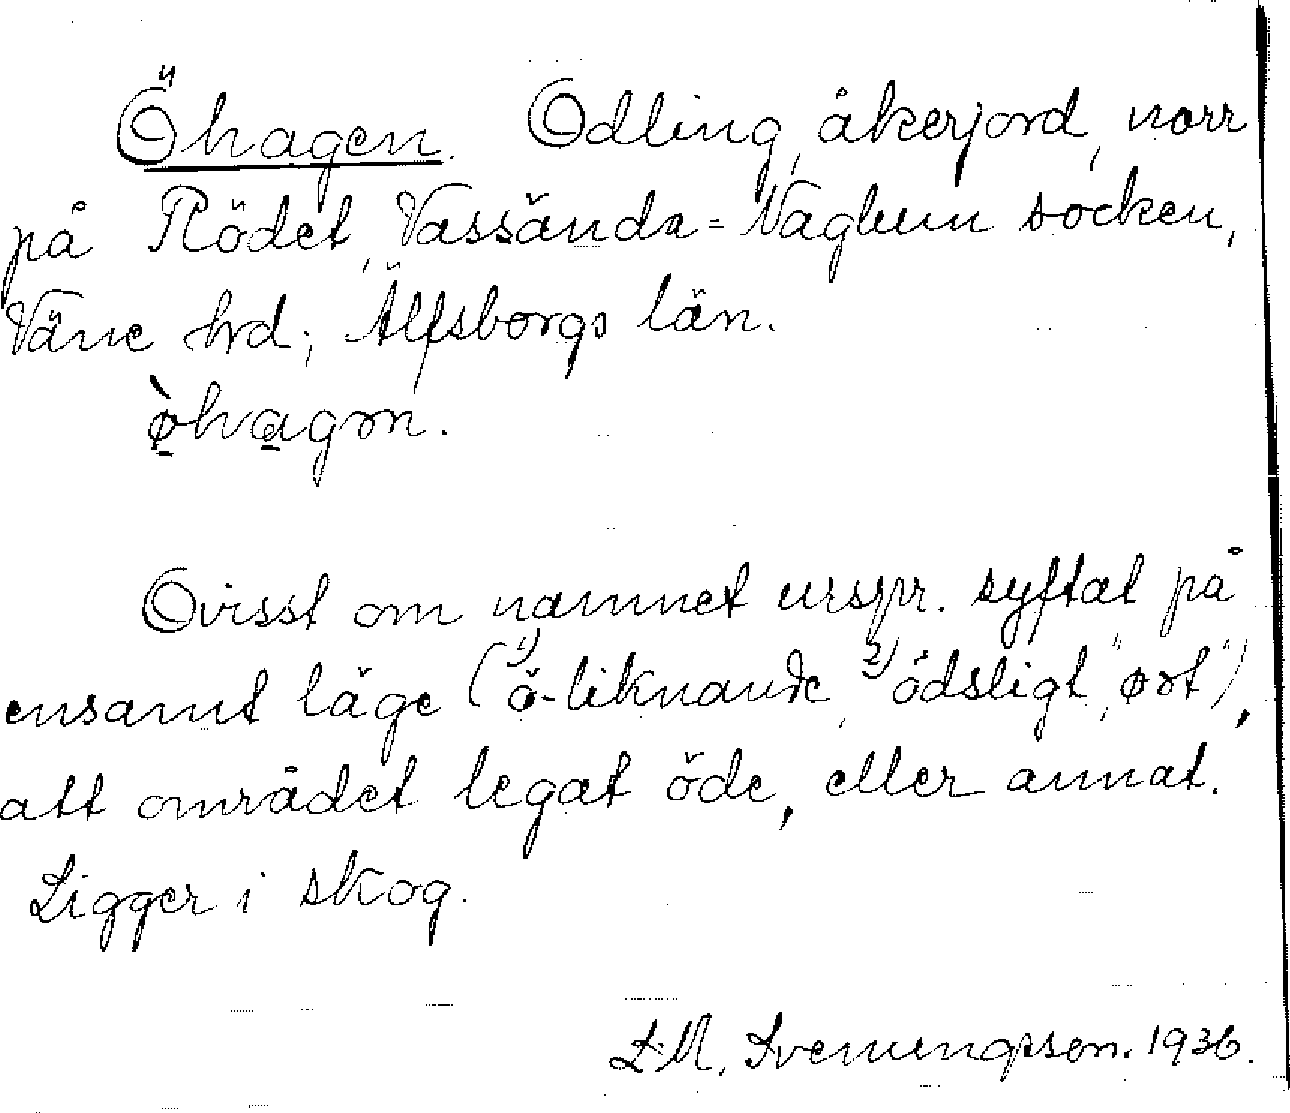 Öhagen. Odling, åkerjord, norr
på Rödet, Vassända-Naglum socken,
Väne hrd; Älfsborgs län.
ø̀hagɘn.
Ovisst om namnet urspr. syftat på
ensamt läge (1) ö-liknande, 2) ödsligt, "øt"),
att området legat öde, eller annat.
Ligger i skog.
L. M. Svenungsson. 1936.